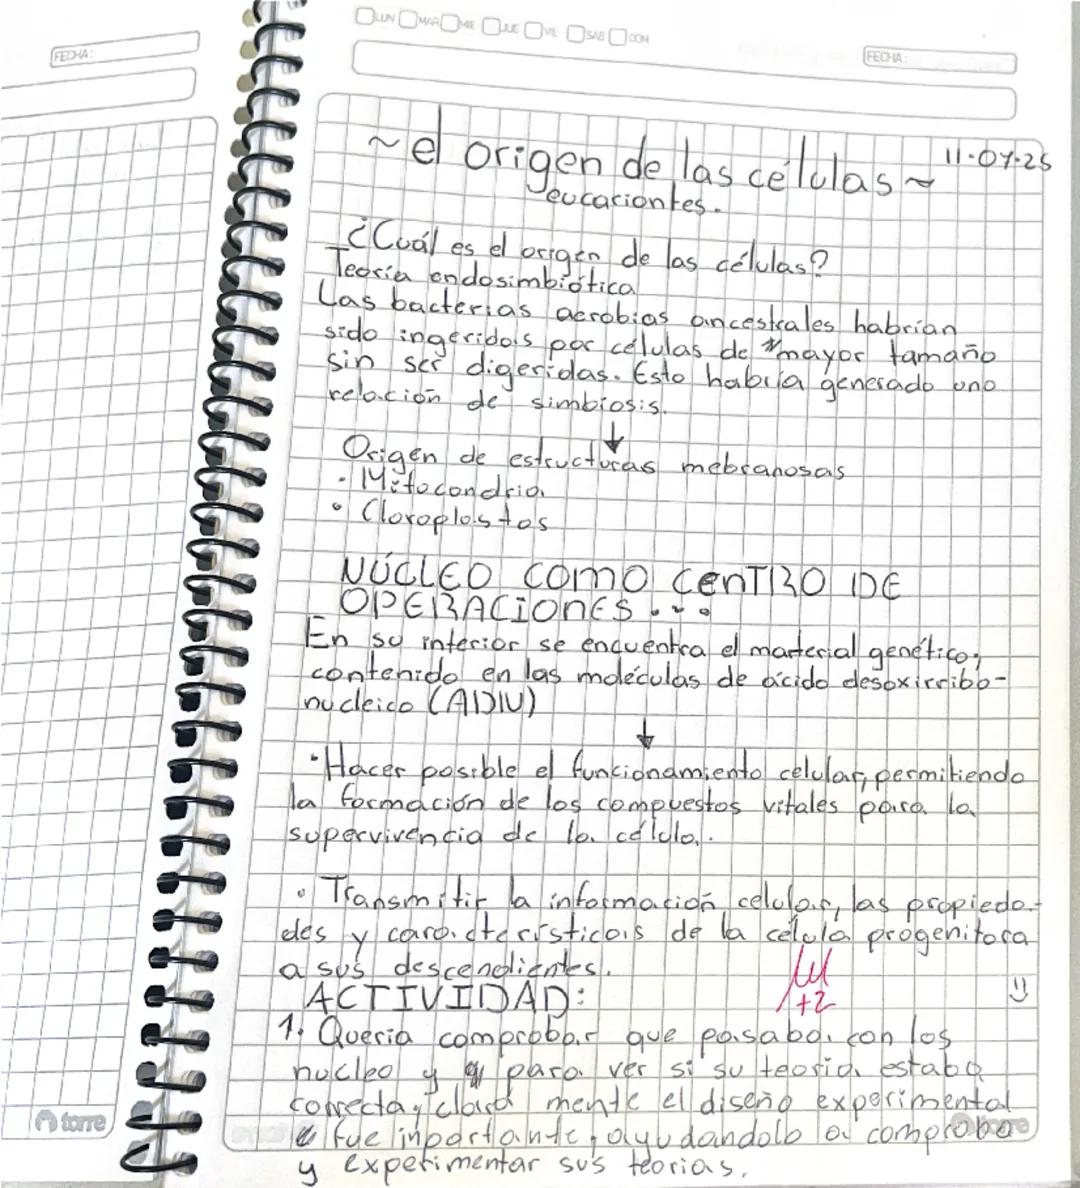 LUN MAR MIE JUE VIE SAB DOM
FECHA:
FECHA:
~el origen de las células~ 11-07-25
eucariontes.
¿Cuál es el origen de las células?
Teoría endosimbiótica
Las bacterias aerobias ancestrales habrían
sido ingeridas por células de mayor tamaño
sin ser digeridas. Esto habría generado una
relación de simbiosis.
↓
Origen de estructuras mebranosas
• Mitocondria
• Cloroplastos
NÚCLEO COMO CENTRO DE
OPERACIONES...
En su interior se encuentra el material genético,
contenido en las moléculas de ácido desoxirribo-
nucleico (ADN)
↓
• Hacer posible el funcionamiento celular, permitiendo
la formación de los compuestos vitales para la
supervivencia de la célula.
• Transmitir la información celular, las propieda-
des y características de la célula progenitora
a sus descendientes.
+2
ACTIVIDAD:
1. Quería comprobar que pasaba con los
nucleo y para ver si su teoria estaba
correcta, clara mente el diseño experimental
fue inportante, ayudandolo a comproba
y experimentar sus teorias.
torre
torre